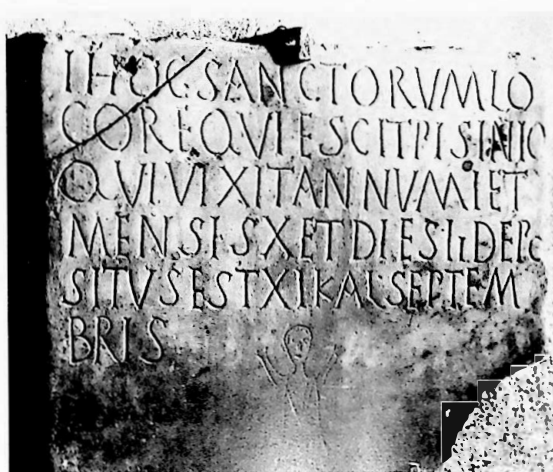 IHOCSANCTORVMLO
COREQVIESCITPISINIO
QVIVIXITANNVMIET
MENSISXETDIESIIDEPO
SITVSESTXIKALSEPTEM
BRIS